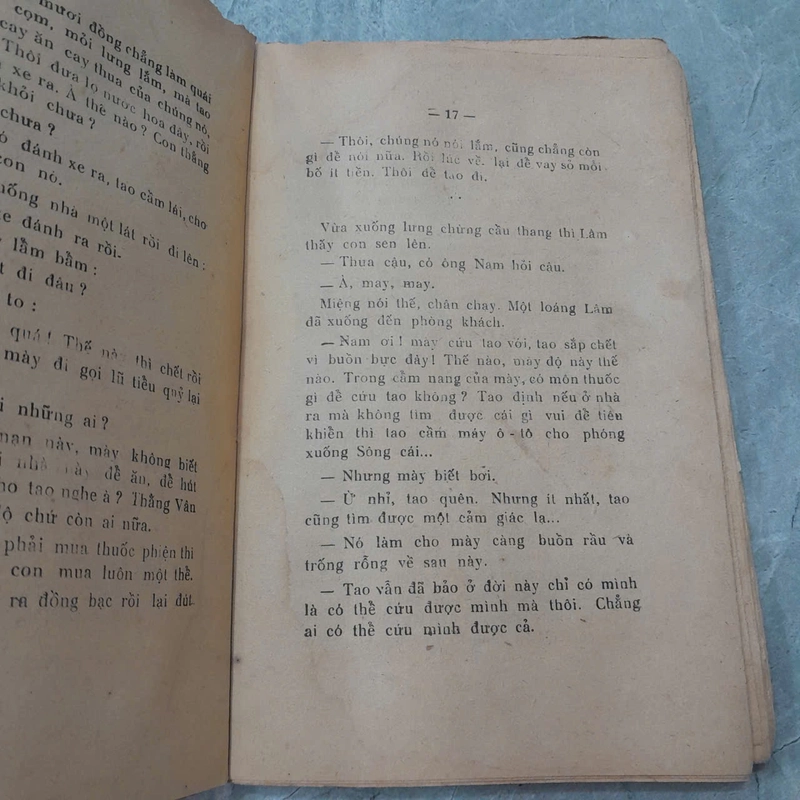 mươi đồng chẳng làm quái
cọm, mỏi lưng lắm, mà tao
cay ăn cay thua của chúng nó,
Thôi đưa lọ nước hoa đây, rồi
xe ra. À thế nào? Con thằng
khỏi chưa?
chưa?
đánh xe ra, tao cầm lái, cho
con nó.
xuống nhà một lát rồi đi lên:
xe đánh ra rồi.
lẩm bẩm:
đi đâu?
to:
quá! Thế này thì chết rồi
mày đi gọi lũ tiểu quỷ lại
những ai?
nạn này, mày không biết
nhà này để ăn, để hút
cho tao nghe à? Thằng Vân
Độ chứ còn ai nữa.
phải mua thuốc phiện thì
con mua luôn một thể.
ra đồng bạc rồi lại đút
— 17 —
— Thôi, chúng nó nói lắm, cũng chẳng còn
gì để nói nữa. Rồi lác về, lại để vay số mỗi
bố ít tiền. Thôi để tao đi.
. .
Vừa xuống lưng chừng cầu thang thì Lâm
thấy con sen lên.
— Thưa cậu, có ông Nam hỏi cậu.
— À, may, may.
Miệng nói thế, chân chạy. Một loáng Lâm
đã xuống đến phòng khách.
— Nam ơi! mày cứu tao với, tao sắp chết
vì buồn bực đây! Thế nào, mày độ này thế
nào. Trong cẩm nang của mày, có môn thuốc
gì để cứu tao không? Tao định nếu ở nhà
ra mà không tìm được cái gì vui để tiêu
khiển thì tao cầm máy ô-tô cho phóng
xuống Sông cái...
— Nhưng mày biết bơi.
— Ừ nhỉ, tao quên. Nhưng ít nhất, tao
cũng tìm được một cảm giác lạ...
— Nó làm cho mày càng buồn rầu và
trống rỗng về sau này.
— Tao vẫn đã bảo ở đời này chỉ có mình
là có thể cứu được mình mà thôi. Chẳng
ai có thể cứu mình được cả.